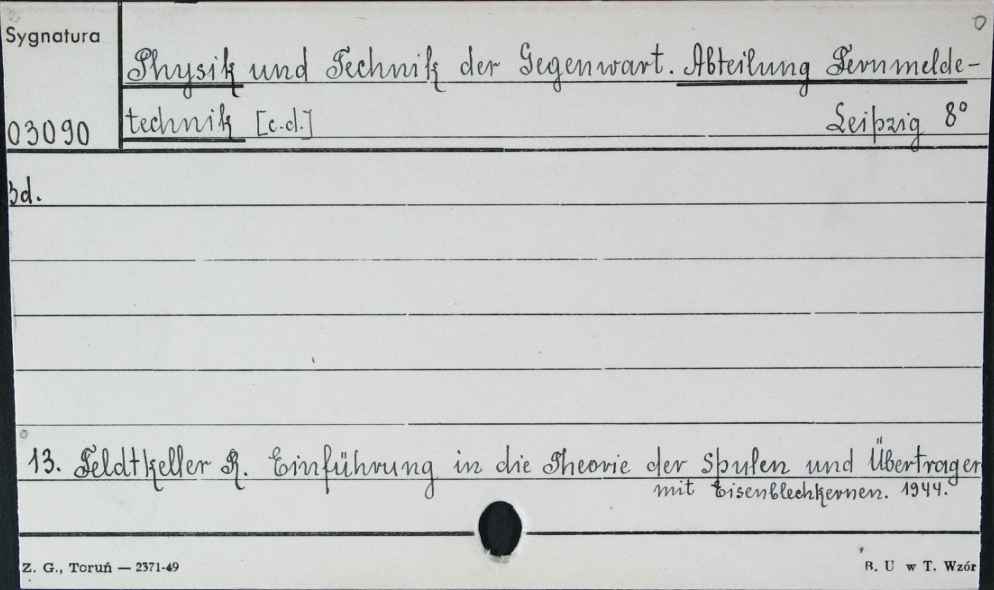 Sygnatura
Physik und Technik der Gegenwart. Abteilung Fernmelde-
03090 technik [c.d.] Leipzig 8°
Bd.
13. Feldtkeller R. Einführung in die Theorie der Spulen und Übertrager
mit Eisenblechkernen. 1944.
Z. G., Toruń — 2371-49 B. U w T. Wzór